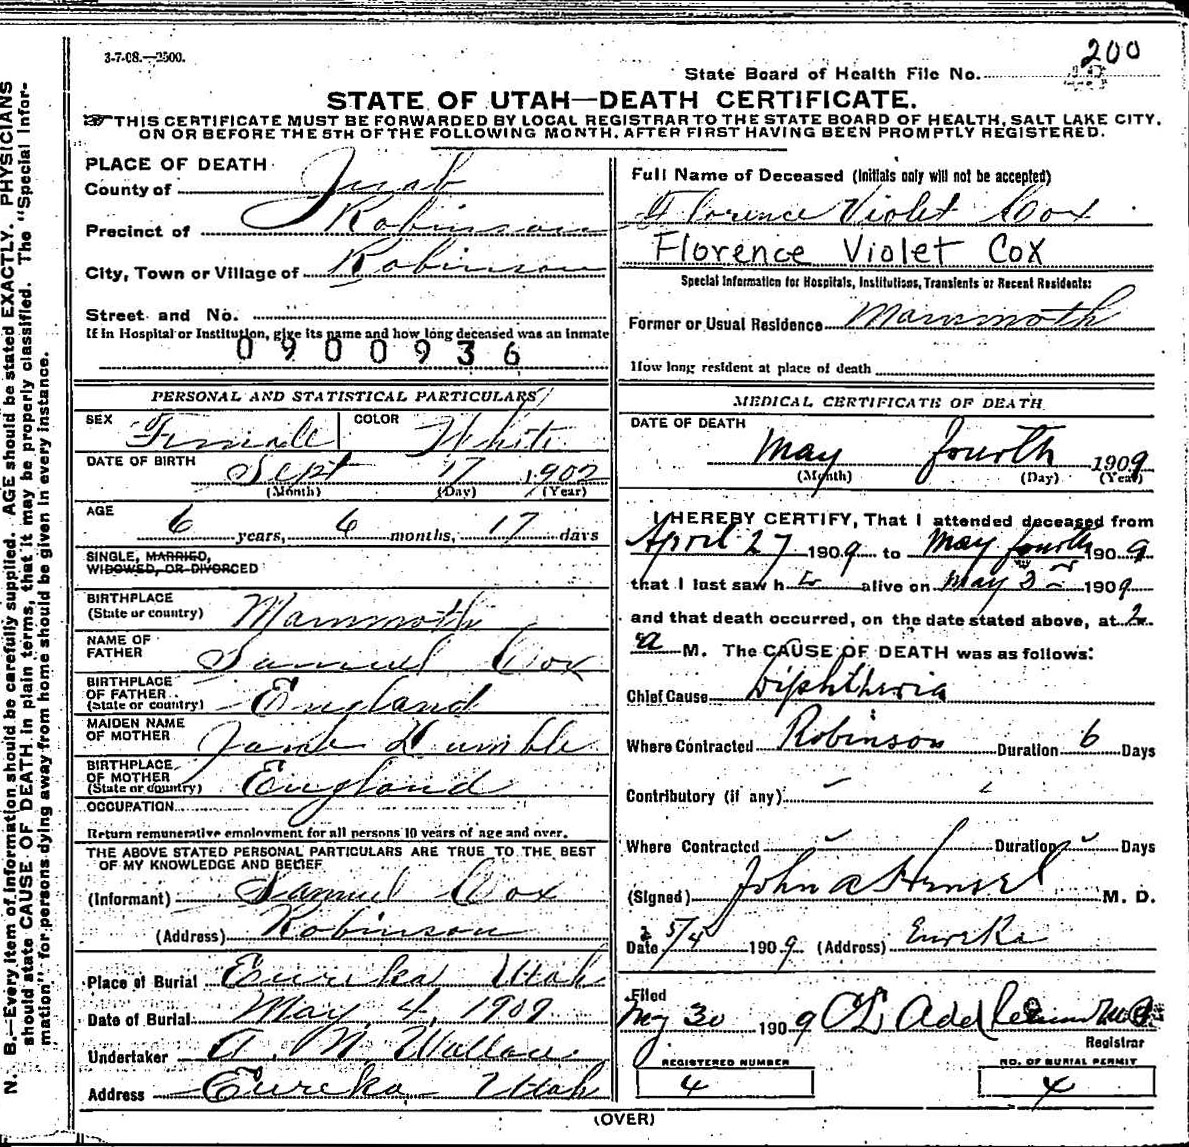 3-7-08.—2500.
200
State Board of Health File No.
STATE OF UTAH—DEATH CERTIFICATE.
THIS CERTIFICATE MUST BE FORWARDED BY LOCAL REGISTRAR TO THE STATE BOARD OF HEALTH, SALT LAKE CITY,
ON OR BEFORE THE 5TH OF THE FOLLOWING MONTH, AFTER FIRST HAVING BEEN PROMPTLY REGISTERED.
PLACE OF DEATH
County of Juab
Precinct of Robinson
City, Town or Village of Robinson
Street and No.
If in Hospital or Institution, give its name and how long deceased was an inmate
0900936
Full Name of Deceased (Initials only will not be accepted)
Florence Violet Cox
Florence Violet Cox
Special Information for Hospitals, Institutions, Transients or Recent Residents:
Former or Usual Residence Mammoth
How long resident at place of death
PERSONAL AND STATISTICAL PARTICULARS
SEX Female COLOR White
DATE OF BIRTH Sept 17 1902
(Month) (Day) (Year)
AGE
6 years, 6 months, 17 days
SINGLE, MARRIED,
WIDOWED, OR DIVORCED
BIRTHPLACE
(State or country) Mammoth
NAME OF
FATHER Samuel Cox
BIRTHPLACE
OF FATHER
(State or country) England
MAIDEN NAME
OF MOTHER Jane Humble
BIRTHPLACE
OF MOTHER
(State or country) England
OCCUPATION
Return remunerative employment for all persons 10 years of age and over.
THE ABOVE STATED PERSONAL PARTICULARS ARE TRUE TO THE BEST
OF MY KNOWLEDGE AND BELIEF
(Informant) Samuel Cox
(Address) Robinson
Place of Burial Eureka Utah
Date of Burial May 4, 1909
Undertaker A. M. Wallace
Address Eureka Utah
MEDICAL CERTIFICATE OF DEATH
DATE OF DEATH
May fourth 1909
(Month) (Day) (Year)
I HEREBY CERTIFY, That I attended deceased from
April 27 1909 to May fourth 1909
that I last saw h alive on May 3 1909
and that death occurred, on the date stated above, at 2
a M. The CAUSE OF DEATH was as follows:
Chief Cause Diphtheria
Where Contracted Robinson Duration 6 Days
Contributory (if any)
Where Contracted Duration Days
(Signed) John A Hensel M. D.
Date 5/4 1909 (Address) Eureka
Filed
May 30 1909
Registrar
REGISTERED NUMBER
4
NO. OF BURIAL PERMIT
4
(OVER)
N. B.—Every item of information should be carefully supplied. AGE should be stated EXACTLY. PHYSICIANS
should state CAUSE OF DEATH in plain terms, that it may be properly classified. The "Special Infor-
mation" for persons dying away from home should be given in every instance.